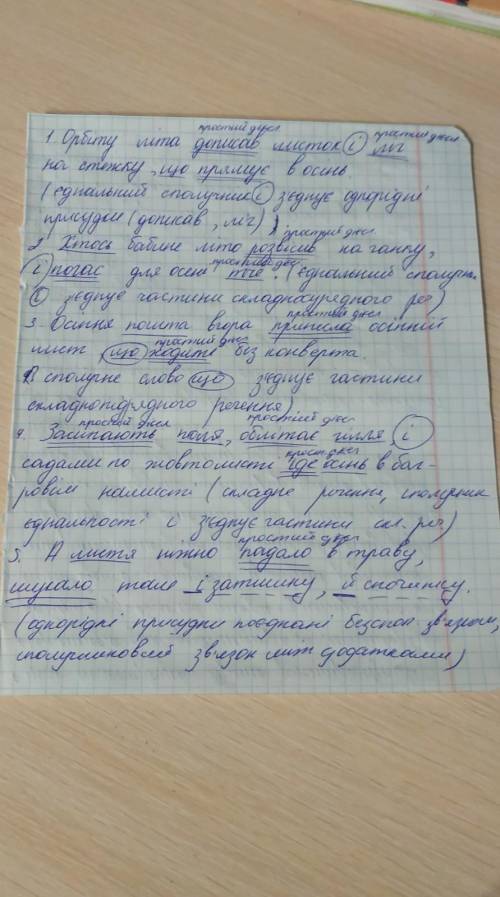 простий дієсл простий дієсл
1. Орбіту літа дописав листок і ліг
на стежку, що прямує в осінь.
(єднальний сполучник і з'єднує однорідні
присудки (дописав, ліг)
простий дієсл
2. Хтось бабине літо розвісив на ганку,
простий дієсл
і погас для осені тихе. (єднальний сполучн.
і з'єднує частини складносурядного реч)
простий дієсл
3. Осіння пошта вчора принесла осінній
простий дієсл
лист, що ходить без конверта.
сполучне слово що з'єднує частини
складнопідрядного речення)
простий дієсл простий дієсл
4. Засипають поля, облітає гілля, і
прост дієсл
садами по жовтолисті іде осінь в баг-
ровім намисті (складне речення, сполучник
єднальності і з'єднує частини скл. реч)
простий дієсл
5. А листя ніжно падало в траву,
шукало тале і затишку, й спочинку.
(однорідні присудки поєднані безспол зв'язком,
сполучниковий зв'язок між додатками)